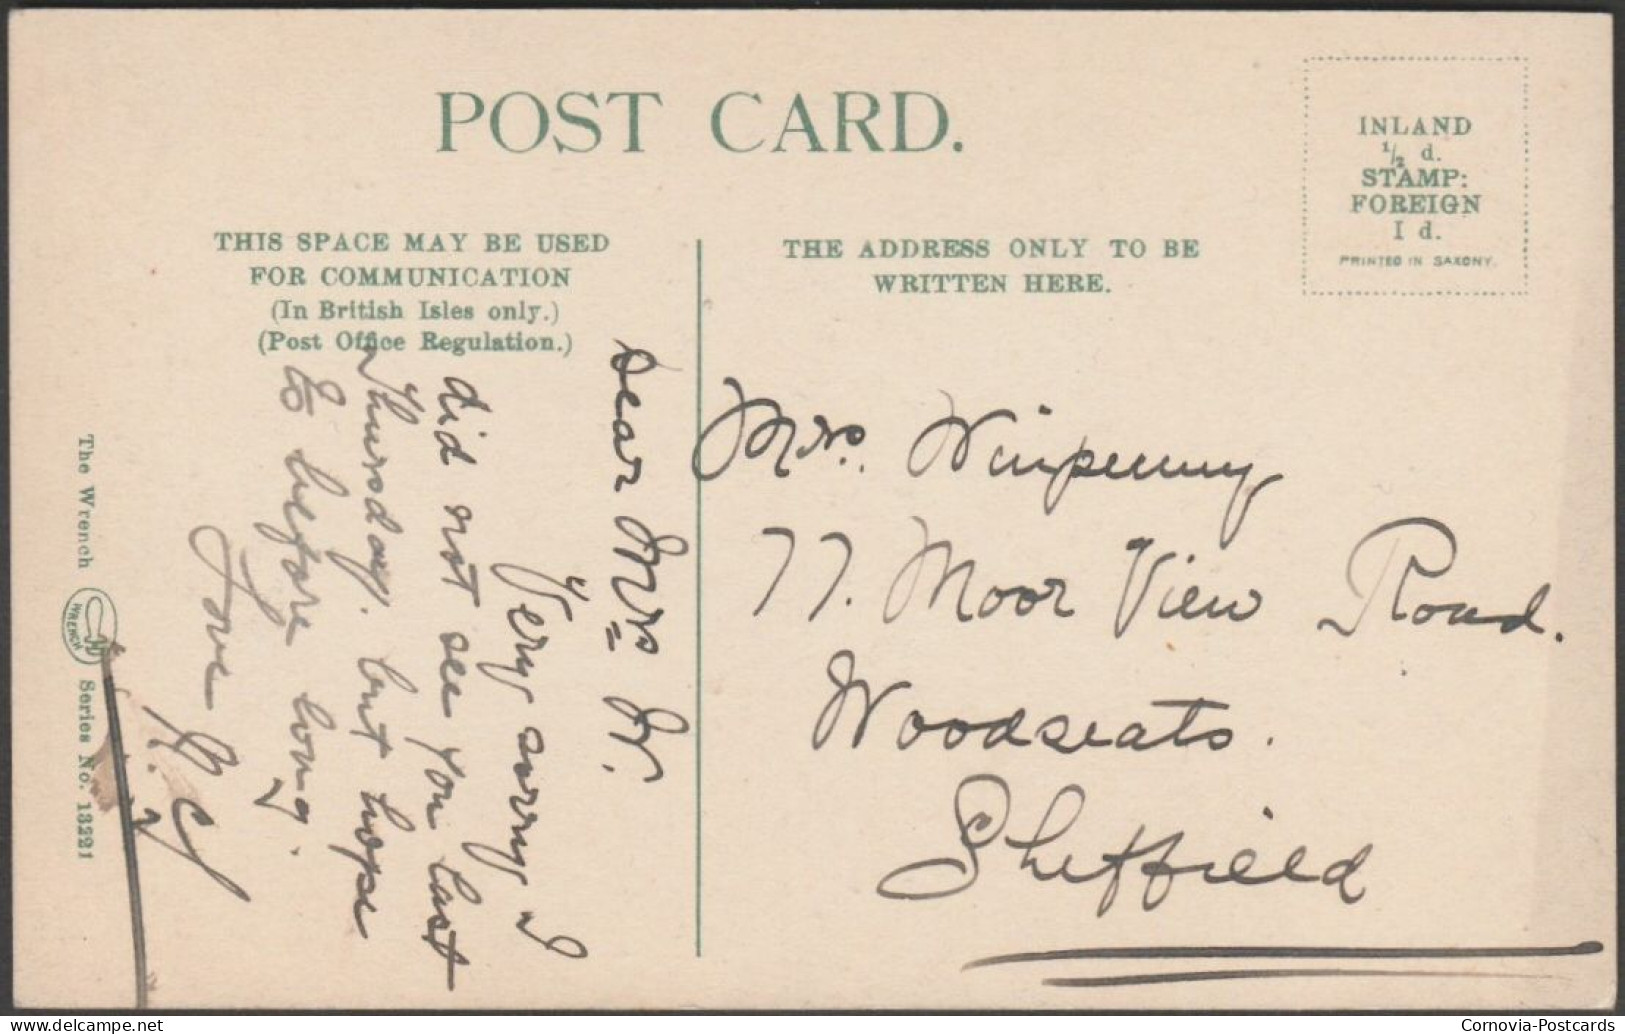 POST CARD.
INLAND
½ d.
STAMP:
FOREIGN
1 d.
PRINTED IN SAXONY.
THIS SPACE MAY BE USED
FOR COMMUNICATION
(In British Isles only.)
(Post Office Regulation.)
THE ADDRESS ONLY TO BE
WRITTEN HERE.
Dear Mrs W.
Very sorry I
did not see you last
Thursday. but hope
to before long.
Love
Mrs. Winpenny
77. Moor View Road.
Woodseats.
Sheffield
The Wrench
WRENCH
Series No. 13221
delcampe.net
Cornovia-Postcards